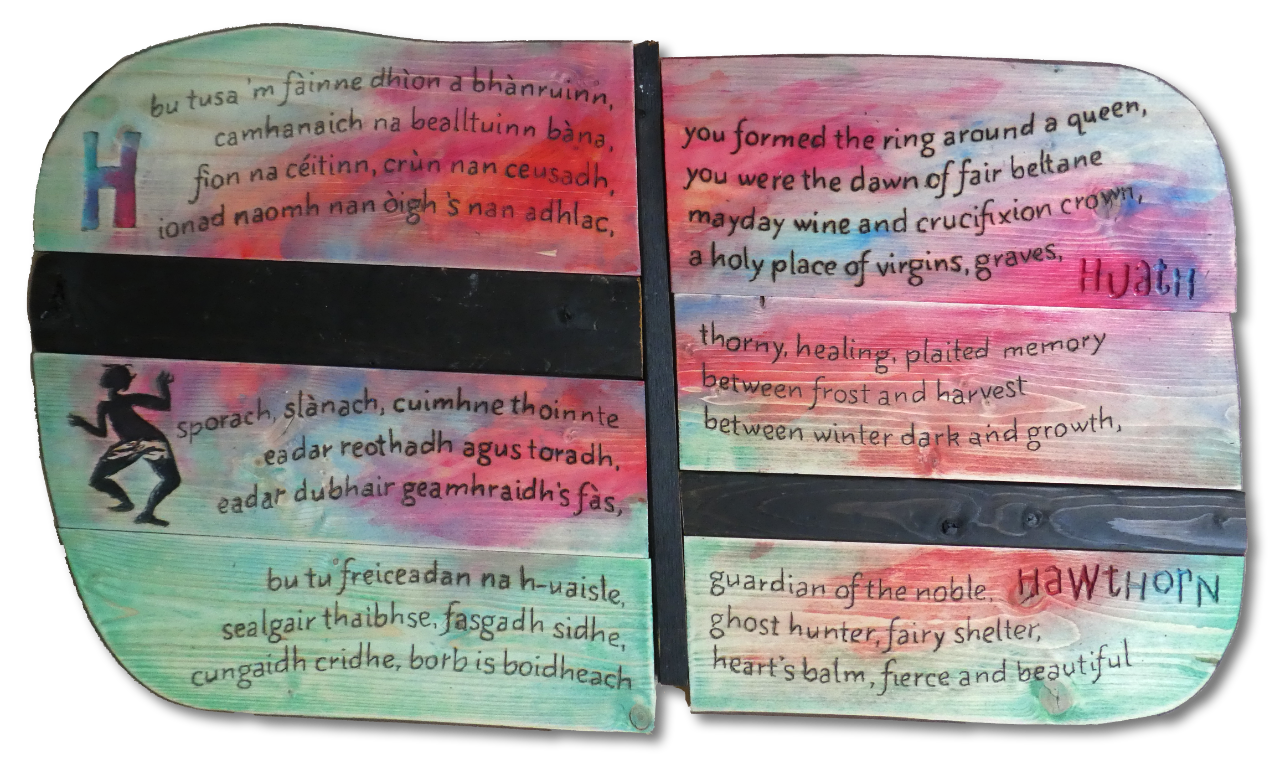 H
bu tusa 'm fàinne dhìon a bhànruinn,
camhanaich na bealltuinn bàna,
fìon na céitinn, crùn nan ceusadh,
ionad naomh nan òigh 's nan adhlac,
sporach, slànach, cuimhne thoinnte
eadar reothadh agus toradh,
eadar dubhair geamhraidh's fàs,
bu tu freiceadan na h-uaisle,
sealgair thaibhse, fasgadh sidhe,
cungaidh cridhe, borb is boidheach
you formed the ring around a queen,
you were the dawn of fair beltane
mayday wine and crucifixion crown,
a holy place of virgins, graves,
Huath
thorny, healing, plaited memory
between frost and harvest
between winter dark and growth,
guardian of the noble, HawtHorN
ghost hunter, fairy shelter,
heart's balm, fierce and beautiful